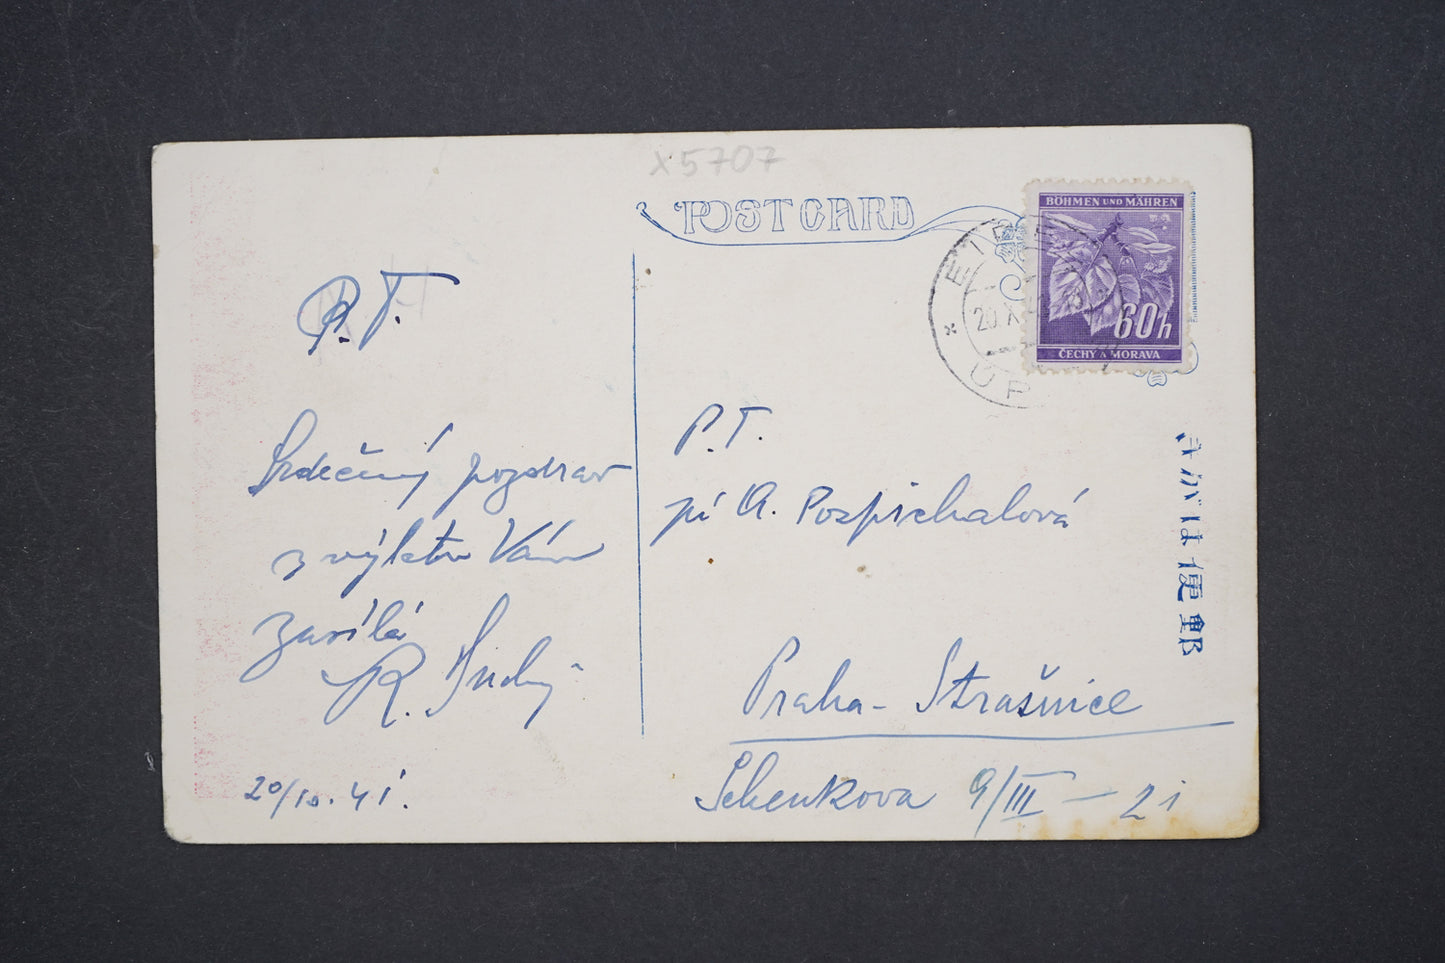 x5707
POST CARD
BÖHMEN UND MÄHREN
60h
ČECHY A MORAVA
20.X
P.T.
Srdečný pozdrav
z výletu Vám
zasílá
R.
20/10.41.
P.T.
pí A. Pospíchalová
Praha - Strašnice
Schenkova 9/III - 21
きがは便郵